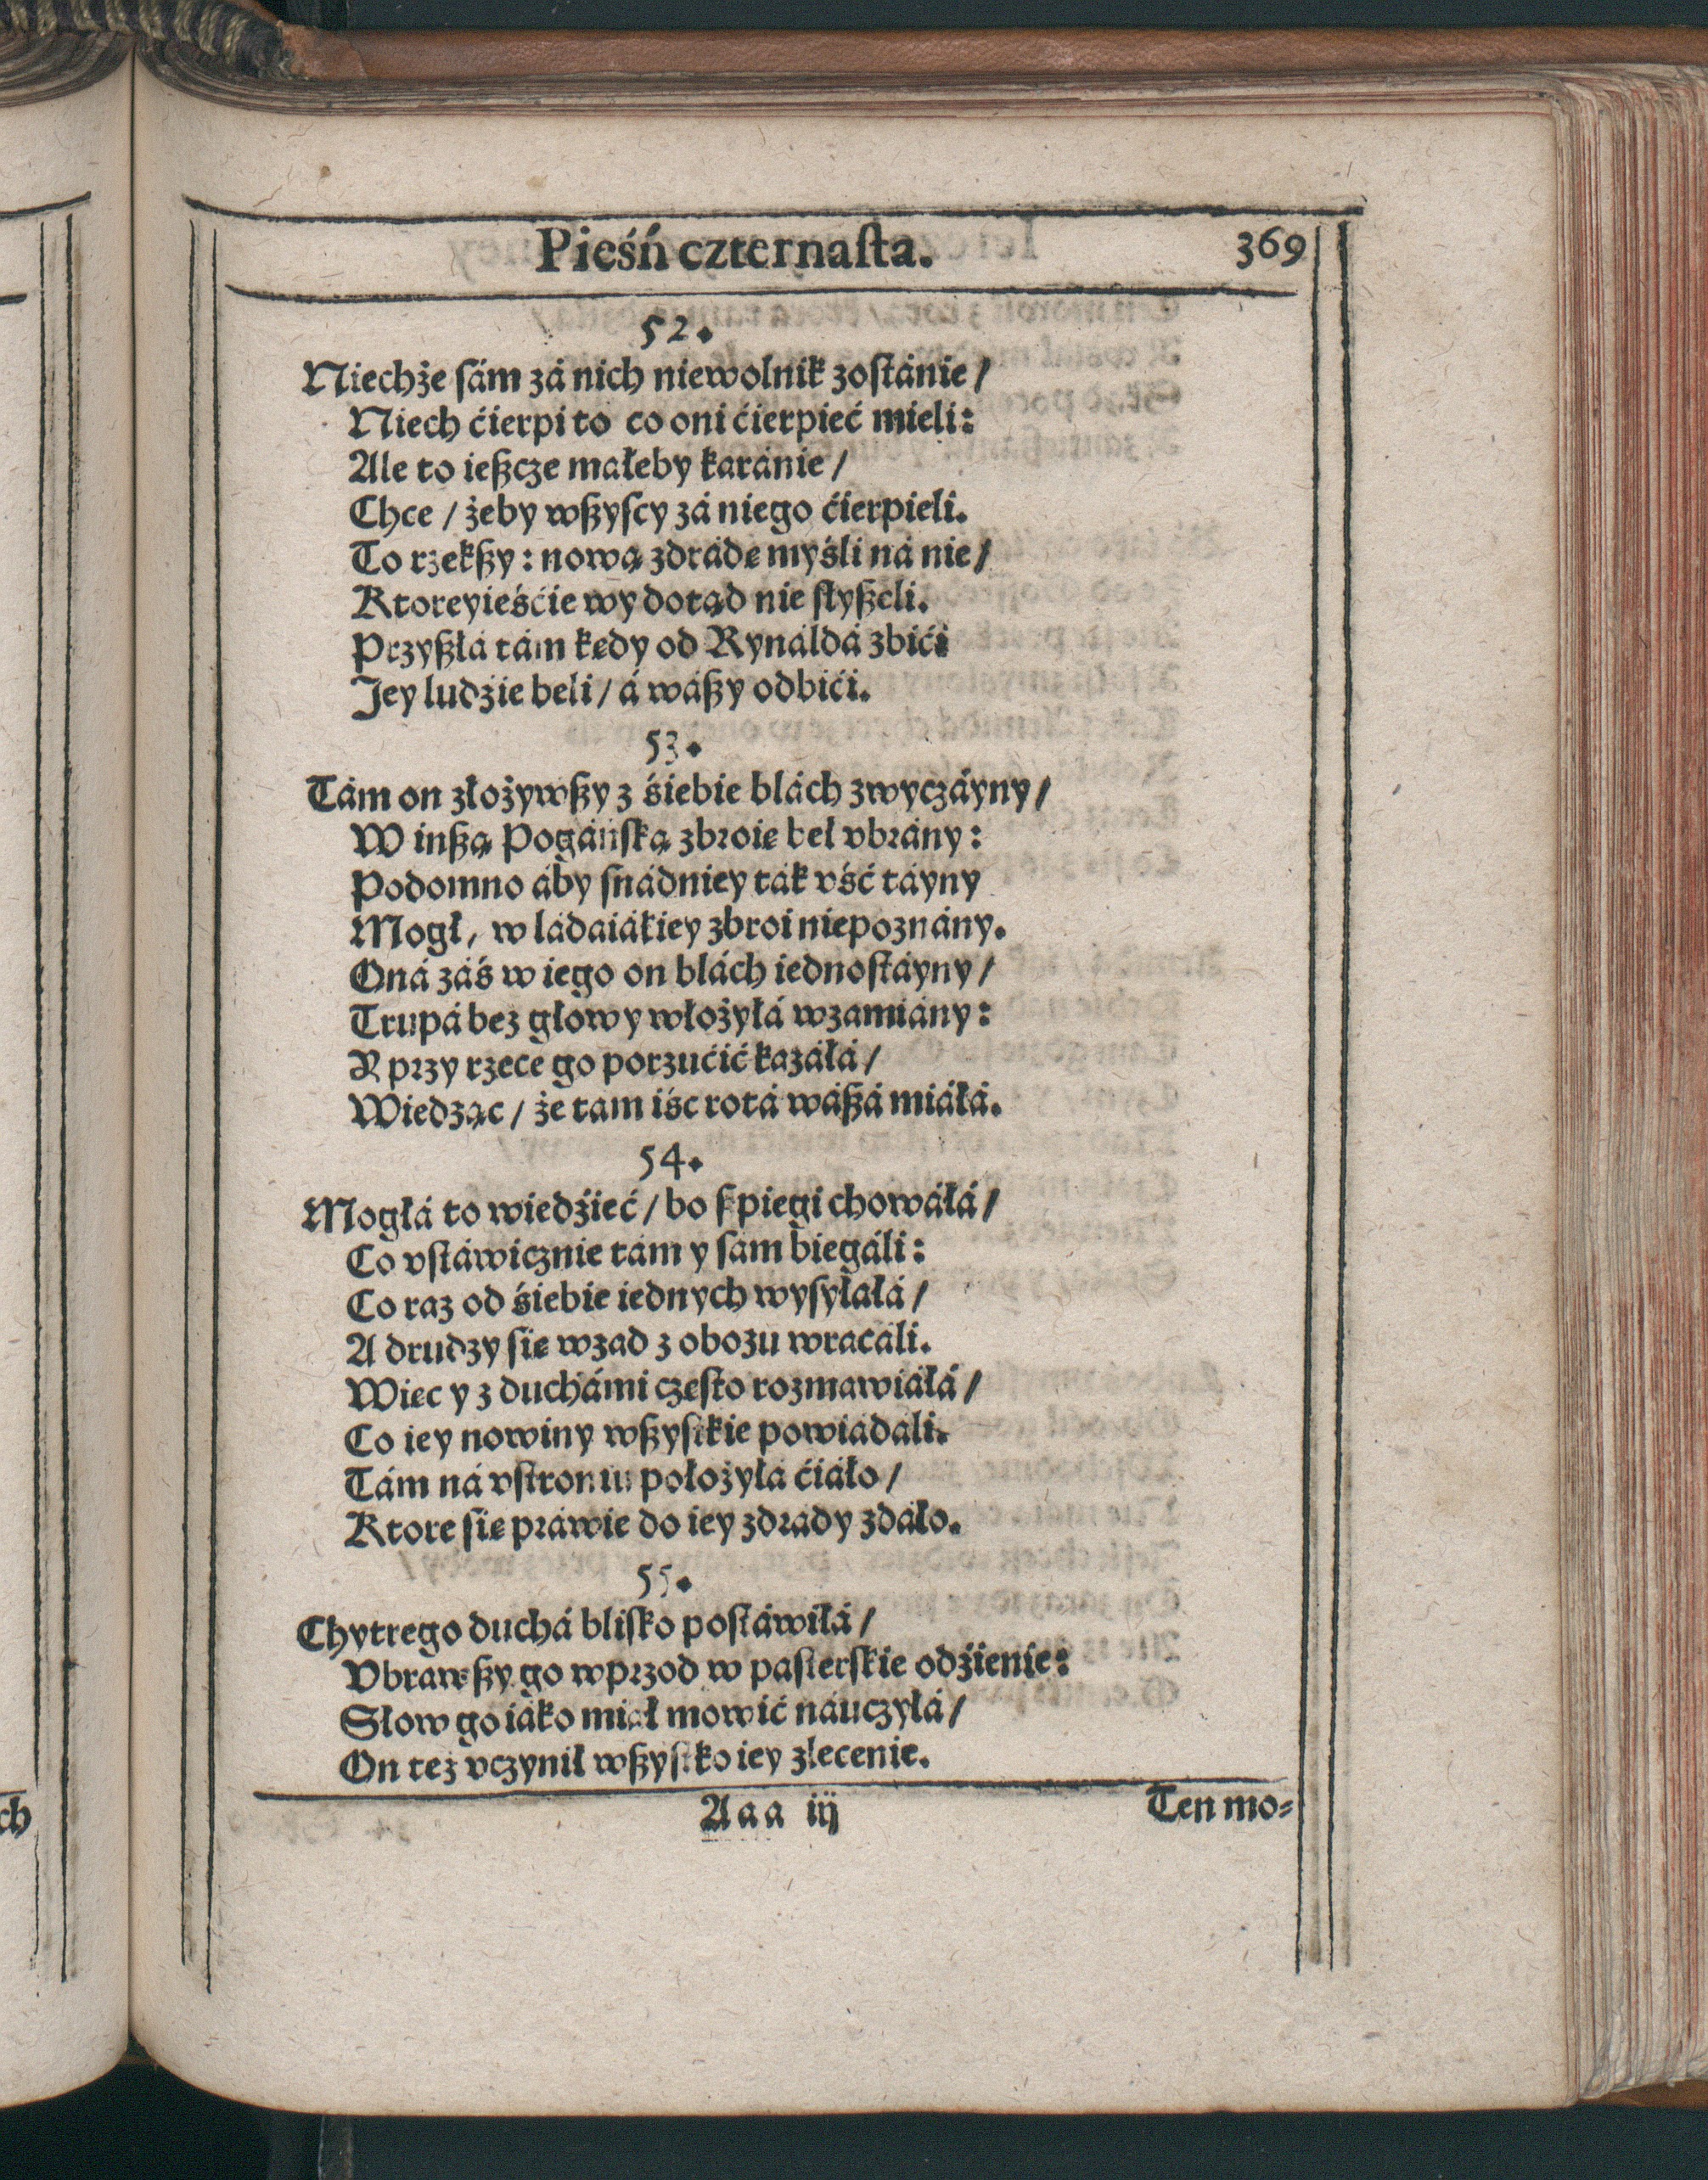 Pieśń czternaſta. 369
52.
Niechże ſám zá nich niewolnik zoſtánie /
Niech ćierpi to co oni ćierpieć mieli:
Ale to ießcze małeby karánie /
Chce / żeby wßyſcy zá niego ćierpieli.
To rzekßy: nową zdrádę myśli ná nie /
Ktoreyieśćie wy dotąd nie ſłyßeli.
Przyßłá tám kędy od Rynáldá zbići
Jey ludźie beli / á wáßy odbići.
53.
Tám on złożywßy z śiebie blách zwyczáyny /
W inßą Pogáńſką zbroię beł vbrány:
Podomno áby ſnádniey ták vść táyny
Mogł, w ládaiákiey zbroi niepoznány.
Oná záś w iego on blách iednoſtáyny /
Trupá bez głowy włożyłá wzamiány:
Y przy rzece go porzućić kazáłá /
Wiedząc / że tam iśc rotá wáßá miáłá.
54.
Mogłá to wiedźieć / bo ſpiegi chowáłá /
Co vſtáwicznie tám y ſám biegáli:
Co raz od śiebie iednych wyſyłałá /
A drudzy ſię wzad z obozu wracáli.
Więc y z duchámi częſto rozmawiáłá /
Co iey nowiny wßyſtkie powiádáli.
Tám ná vſtroniu położyłá ćiáło /
Ktore ſię práwie do iey zdrády zdáło.
55.
Chytrego duchá bliſko poſtáwiłá /
Vbrawßy go wprzod w paſterſkie odźienie:
Słow go iáko miał mowić náuczyłá /
On też vczynił wßyſtko iey zlecenie.
Aaa iij Ten mo-
ch